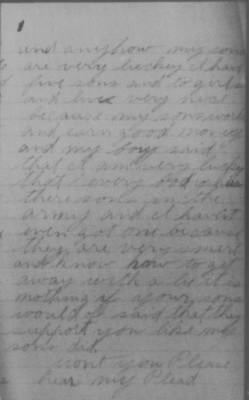 1
and anyhow my sons
are very luckey I have
five sons and to girls
and live very nice
because my sons work
and earn good money
and my boy said
that I am very lucky
that every body has
there sons in the
army and I havent
even got one because
they are very smart
and know how to get
away with a lie it is
nothing if your sons
would of said that they
support you like my
sons did.
wont you Please
hear my Plead